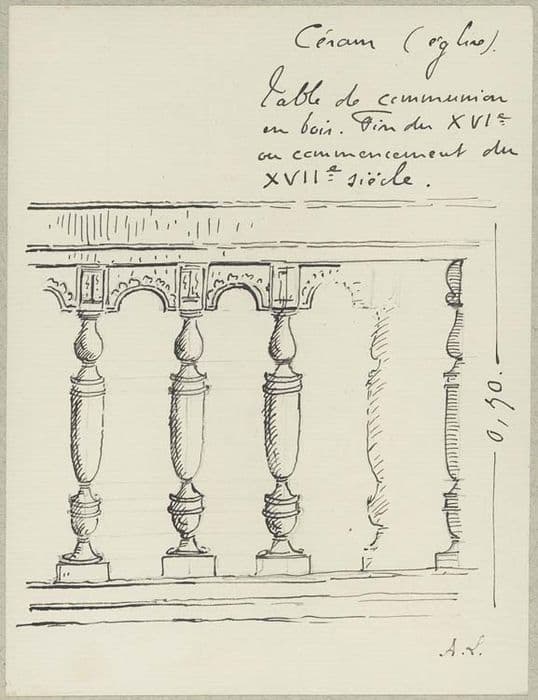 Céran (église).
Table de communion
en bois. Fin du XVIe
ou commencement du
XVIIe siècle.
0,90.
A.L.